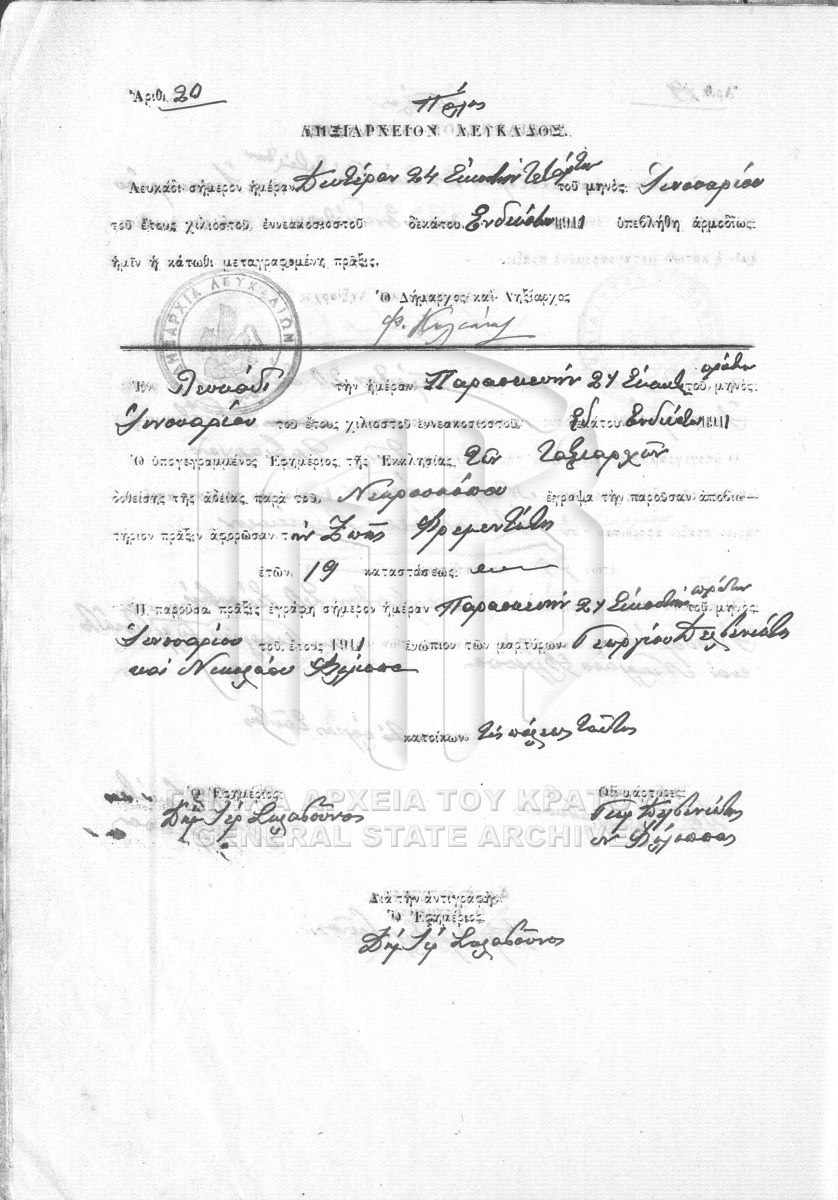 Ἀριθ. 20
Πόλις
ΛΗΞΙΑΡΧΕΙΟΝ ΛΕΥΚΑΔΟΣ.
Λευκάδι σήμερον ἡμέραν Δευτέραν 24 Εἰκοστὴν τετάρτην τοῦ μηνὸς Ἰανουαρίου
τοῦ ἔτους χιλιοστοῦ ἐννεακοσιοστοῦ δεκάτου Ἑνδεκάτου 1911 ὑπεβλήθη ἁρμοδίως
ἡμῖν ἡ κάτωθι μεταγραφομένη πρᾶξις.
Ὁ Δήμαρχος καὶ Ληξίαρχος
ΔΗΜΑΡΧΙΑ ΛΕΥΚΑΔΙΩΝ
Ἐν Λευκάδι τὴν ἡμέραν Παρασκευὴν 21 Εἰκοστὴν πρώτην τοῦ μηνὸς
Ἰανουαρίου τοῦ ἔτους χιλιοστοῦ ἐννεακοσιοστοῦ δεκάτου Ἑνδεκάτου 1911
Ὁ ὑπογεγραμμένος Ἐφημέριος τῆς Ἐκκλησίας τῶν Ταξιαρχῶν
δοθείσης τῆς ἀδείας παρὰ τοῦ Νεκροσκόπου ἔγραψα τὴν παροῦσαν ἀποβιω-
τήριον πρᾶξιν ἀφορῶσαν τὴν Ζωῆς Φρεμεντίτη
ἐτῶν 19 καταστάσεως
Ἡ παροῦσα πρᾶξις ἐγράφη σήμερον ἡμέραν Παρασκευὴν 21 Εἰκοστὴν πρώτην τοῦ μηνὸς
Ἰανουαρίου τοῦ ἔτους 1911 ἐνώπιον τῶν μαρτύρων Γεωργίου Δελβινιώτη
καὶ Νικολάου Φίλιππα
κατοίκων τῆς πόλεως ταύτης
Ὁ Ἐφημέριος Οἱ μάρτυρες
Γεώ Δελβινιώτης
Ν Φίλιππας
ΓΕΝΙΚΑ ΑΡΧΕΙΑ ΤΟΥ ΚΡΑΤΟΥΣ
GENERAL STATE ARCHIVES
Διὰ τὴν ἀντιγραφήν.
Ὁ Ἐφημέριος